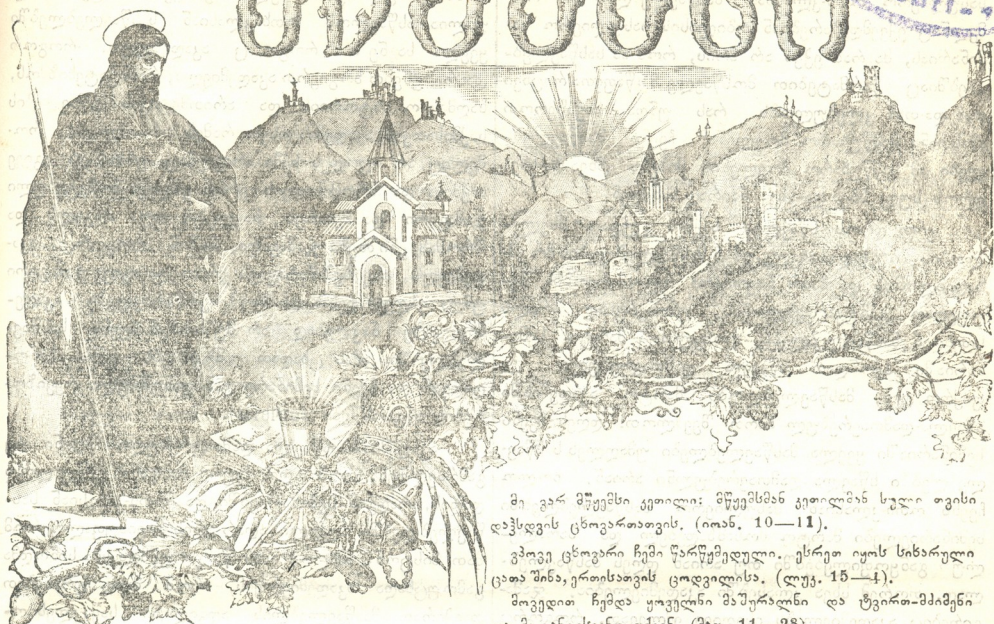 მწყემსი
მე ვარ მწყემსი კეთილი: მწყემსმან კეთილმან სული თვისი
დაჰსდვის ცხოვართათვის. (იოან. 10—11).
ვჰოვე ცხოვარი ჩემი წარწყმედული. ესრეთ იყოს სიხარული
ცათა შინა, ერთისათვის ცოდვილისა. (ლუკ. 15—4).
მოვედით ჩემდა ყოველნი მაშურალნი და ტვირთ-მძიმენი